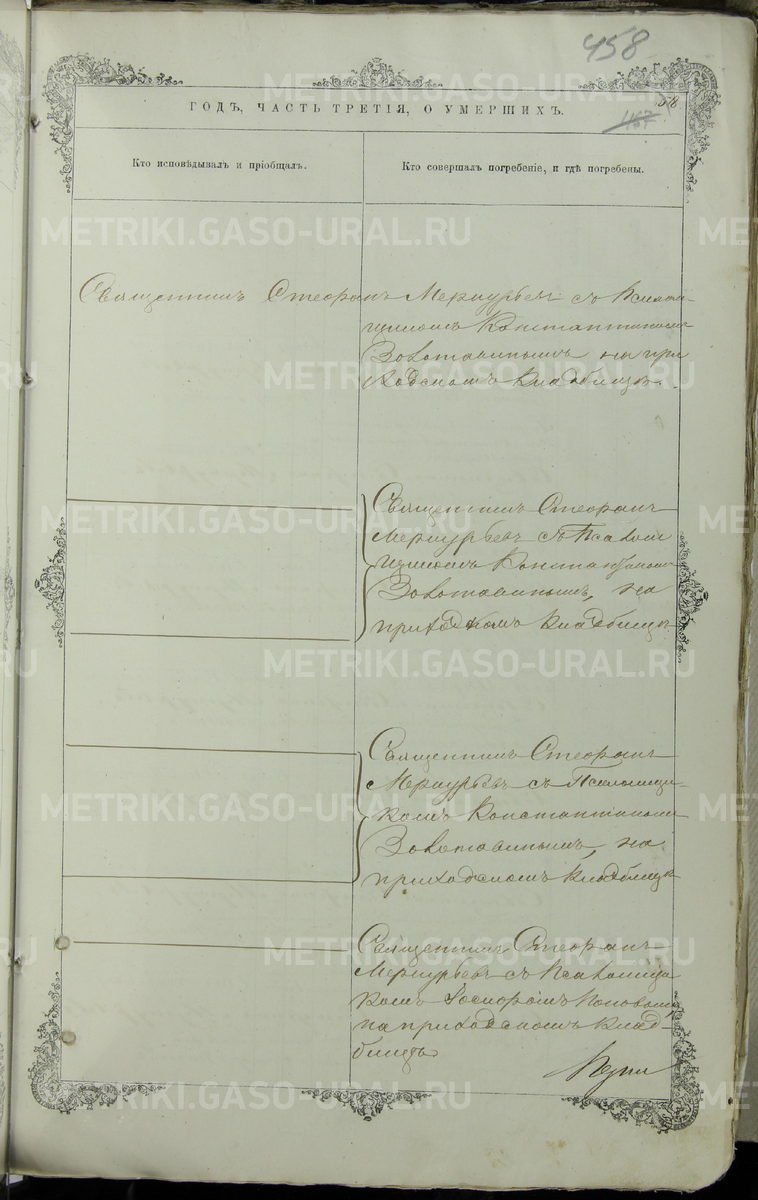 458
58
1167
ГОДЪ, ЧАСТЬ ТРЕТІЯ, О УМЕРШИХЪ.
Кто исповѣдывалъ и пріобщалъ.
Кто совершалъ погребеніе, и гдѣ погребены.
Священникъ Стефанъ Меркурьевъ съ Псалом-
щикомъ Константиномъ
Золотавинымъ на при-
ходскомъ кладбищѣ.
Священникъ Стефанъ
Меркурьевъ съ Псалом
щикомъ Константиномъ
Золотавинымъ, на
приходскомъ кладбищѣ
Священникъ Стефанъ
Меркурьевъ съ Псаломщи-
комъ Константиномъ
Золотавинымъ, на
приходскомъ кладбищѣ
Священникъ Стефанъ
Меркурьевъ съ Псаломщи
комъ Поповымъ,
на приходскомъ клад-
бищѣ
METRIKI.GASO-URAL.RU